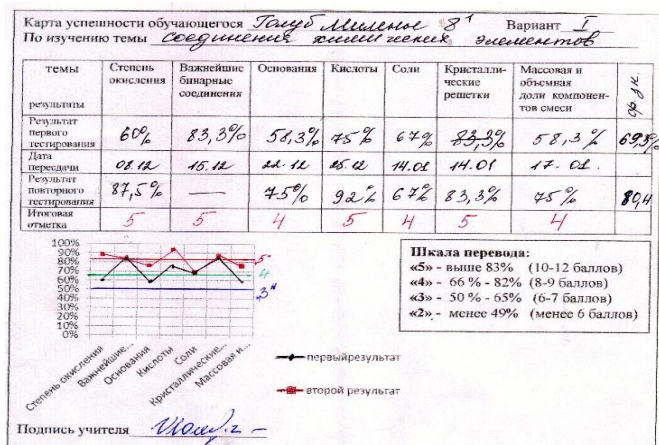 Карта успешности обучающегося Голуб Милены 8¹ Вариант I
По изучению темы соединения химических элементов
темы результаты Степень окисления Важнейшие бинарные соединения Основания Кислоты Соли Кристаллические решетки Массовая и объемная доли компонентов смеси ср.зн.
Результат первого тестирования 60% 83,3% 58,3% 75% 67% 83,3% 58,3% 69,3%
Дата пересдачи 08.12 15.12 22.12 25.12 14.01 14.01 17.01.
Результат повторного тестирования 87,5% — 75% 92% 67% 83,3% 75% 80,4
Итоговая отметка 5 5 4 5 4 5 4
100%
90%
80%
70%
60%
50%
40%
30%
20%
10%
0%
"5"
4
"3"
Степень окисления
Важнейшие...
Основания
Кислоты
Соли
Кристаллические...
Массовая и...
первый результат
второй результат
Шкала перевода:
«5» - выше 83% (10-12 баллов)
«4» - 66 % - 82% (8-9 баллов)
«3» - 50 % - 65% (6-7 баллов)
«2» - менее 49% (менее 6 баллов)
Подпись учителя